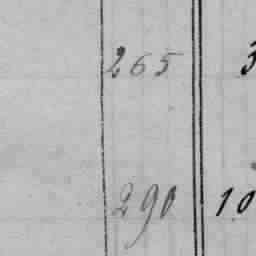 265 3
290 10